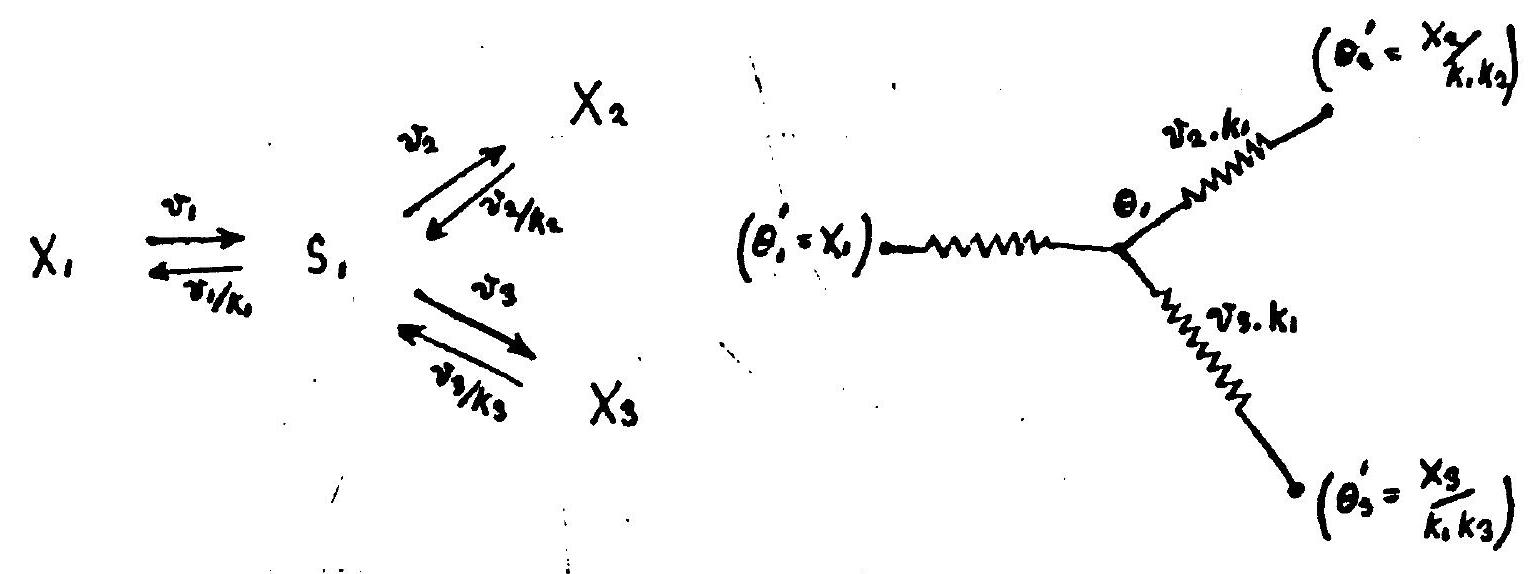 X₁
v₁
v₁/k₁
S₁
v₂
v₂/k₂
X₂
v₃
v₃/k₃
X₃
(θ₁' = X₁)
θ₁
v₂·k₁
(θ₂' = X₂/k₁k₂)
v₃·k₁
(θ₃' = X₃/k₁k₃)